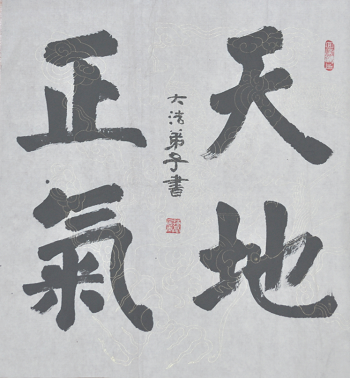 天地
正氣
大浩弟子書